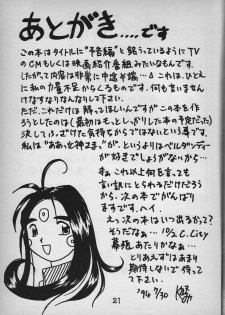 あとがき....です
この本はタイトルに"予告編"と銘うっているようにTV
のCMもしくは映画紹介番組みたいなもんです。
したがって内容は非常に中途半端…。これは、ひとえ
に私の力量不足からくるものです。何も言いません
けなすなりなんなりして下さい。
ただ、これだけは解ってほしいんですが この本を作
ろうとしたのは(最初はもっとしっかりした本の予定だった)
決して、ふざけた気持ちからではないという事です。
私は「ああっ女神さまっ」が、というよりはベルダンディーが
好きでしょうがないから…。
まぁ これ以上何を言っても
言い訳にとらわれるだけだろう
から、次の本でがんばり
ますです。ハイ。
えっ次の本はいつ出るかって?
そうだなぁ… 10/2 C.City
幕張あたりかなぁ…
とりあえずはあまり
期待しないで待って
て下さい。
'94 7/30
21